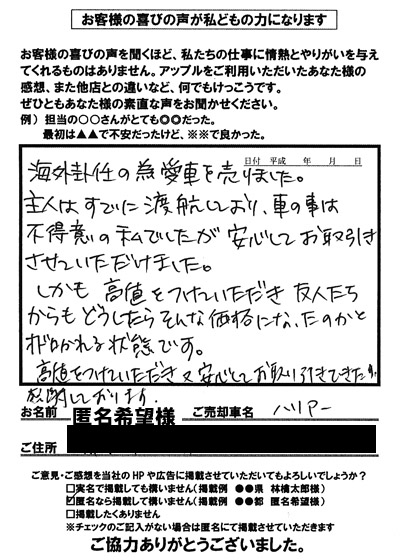 お客様の喜びの声が私どもの力になります
お客様の喜びの声を聞くほど、私たちの仕事に情熱とやりがいを与え
てくれるものはありません。アップルをご利用いただいたあなた様の
感想、また他店との違いなど、何でもけっこうです。
ぜひともあなた様の素直な声をお聞かせください。
例）担当の○○さんがとても◎◎だった。
最初は▲▲で不安だったけど、※※で良かった。
日付 平成　年　月　日
海外赴任の為愛車を売りました。
主人はすでに渡航しており、車の事は
不得意の私でしたが 安心してお取引き
させていただけました。
しかも 高値をつけていただき 友人たち
からも どうしたらそんな価格になったのかと
聞かれる状態です。
高値をつけていただき又安心してお取り引きできた
しております。
お名前 匿名希望様 ご売却車名 ハリアー
ご住所
ご意見・ご感想を当社のHPや広告に掲載させていただいてもよろしいでしょうか？
□実名で掲載しても構いません（掲載例 ●●県 林檎太郎様）
☑匿名なら掲載して構いません（掲載例 ●●都 匿名希望様）
□掲載したくありません
※チェックのご記入がない場合は匿名にて掲載させていただきます
ご協力ありがとうございました。